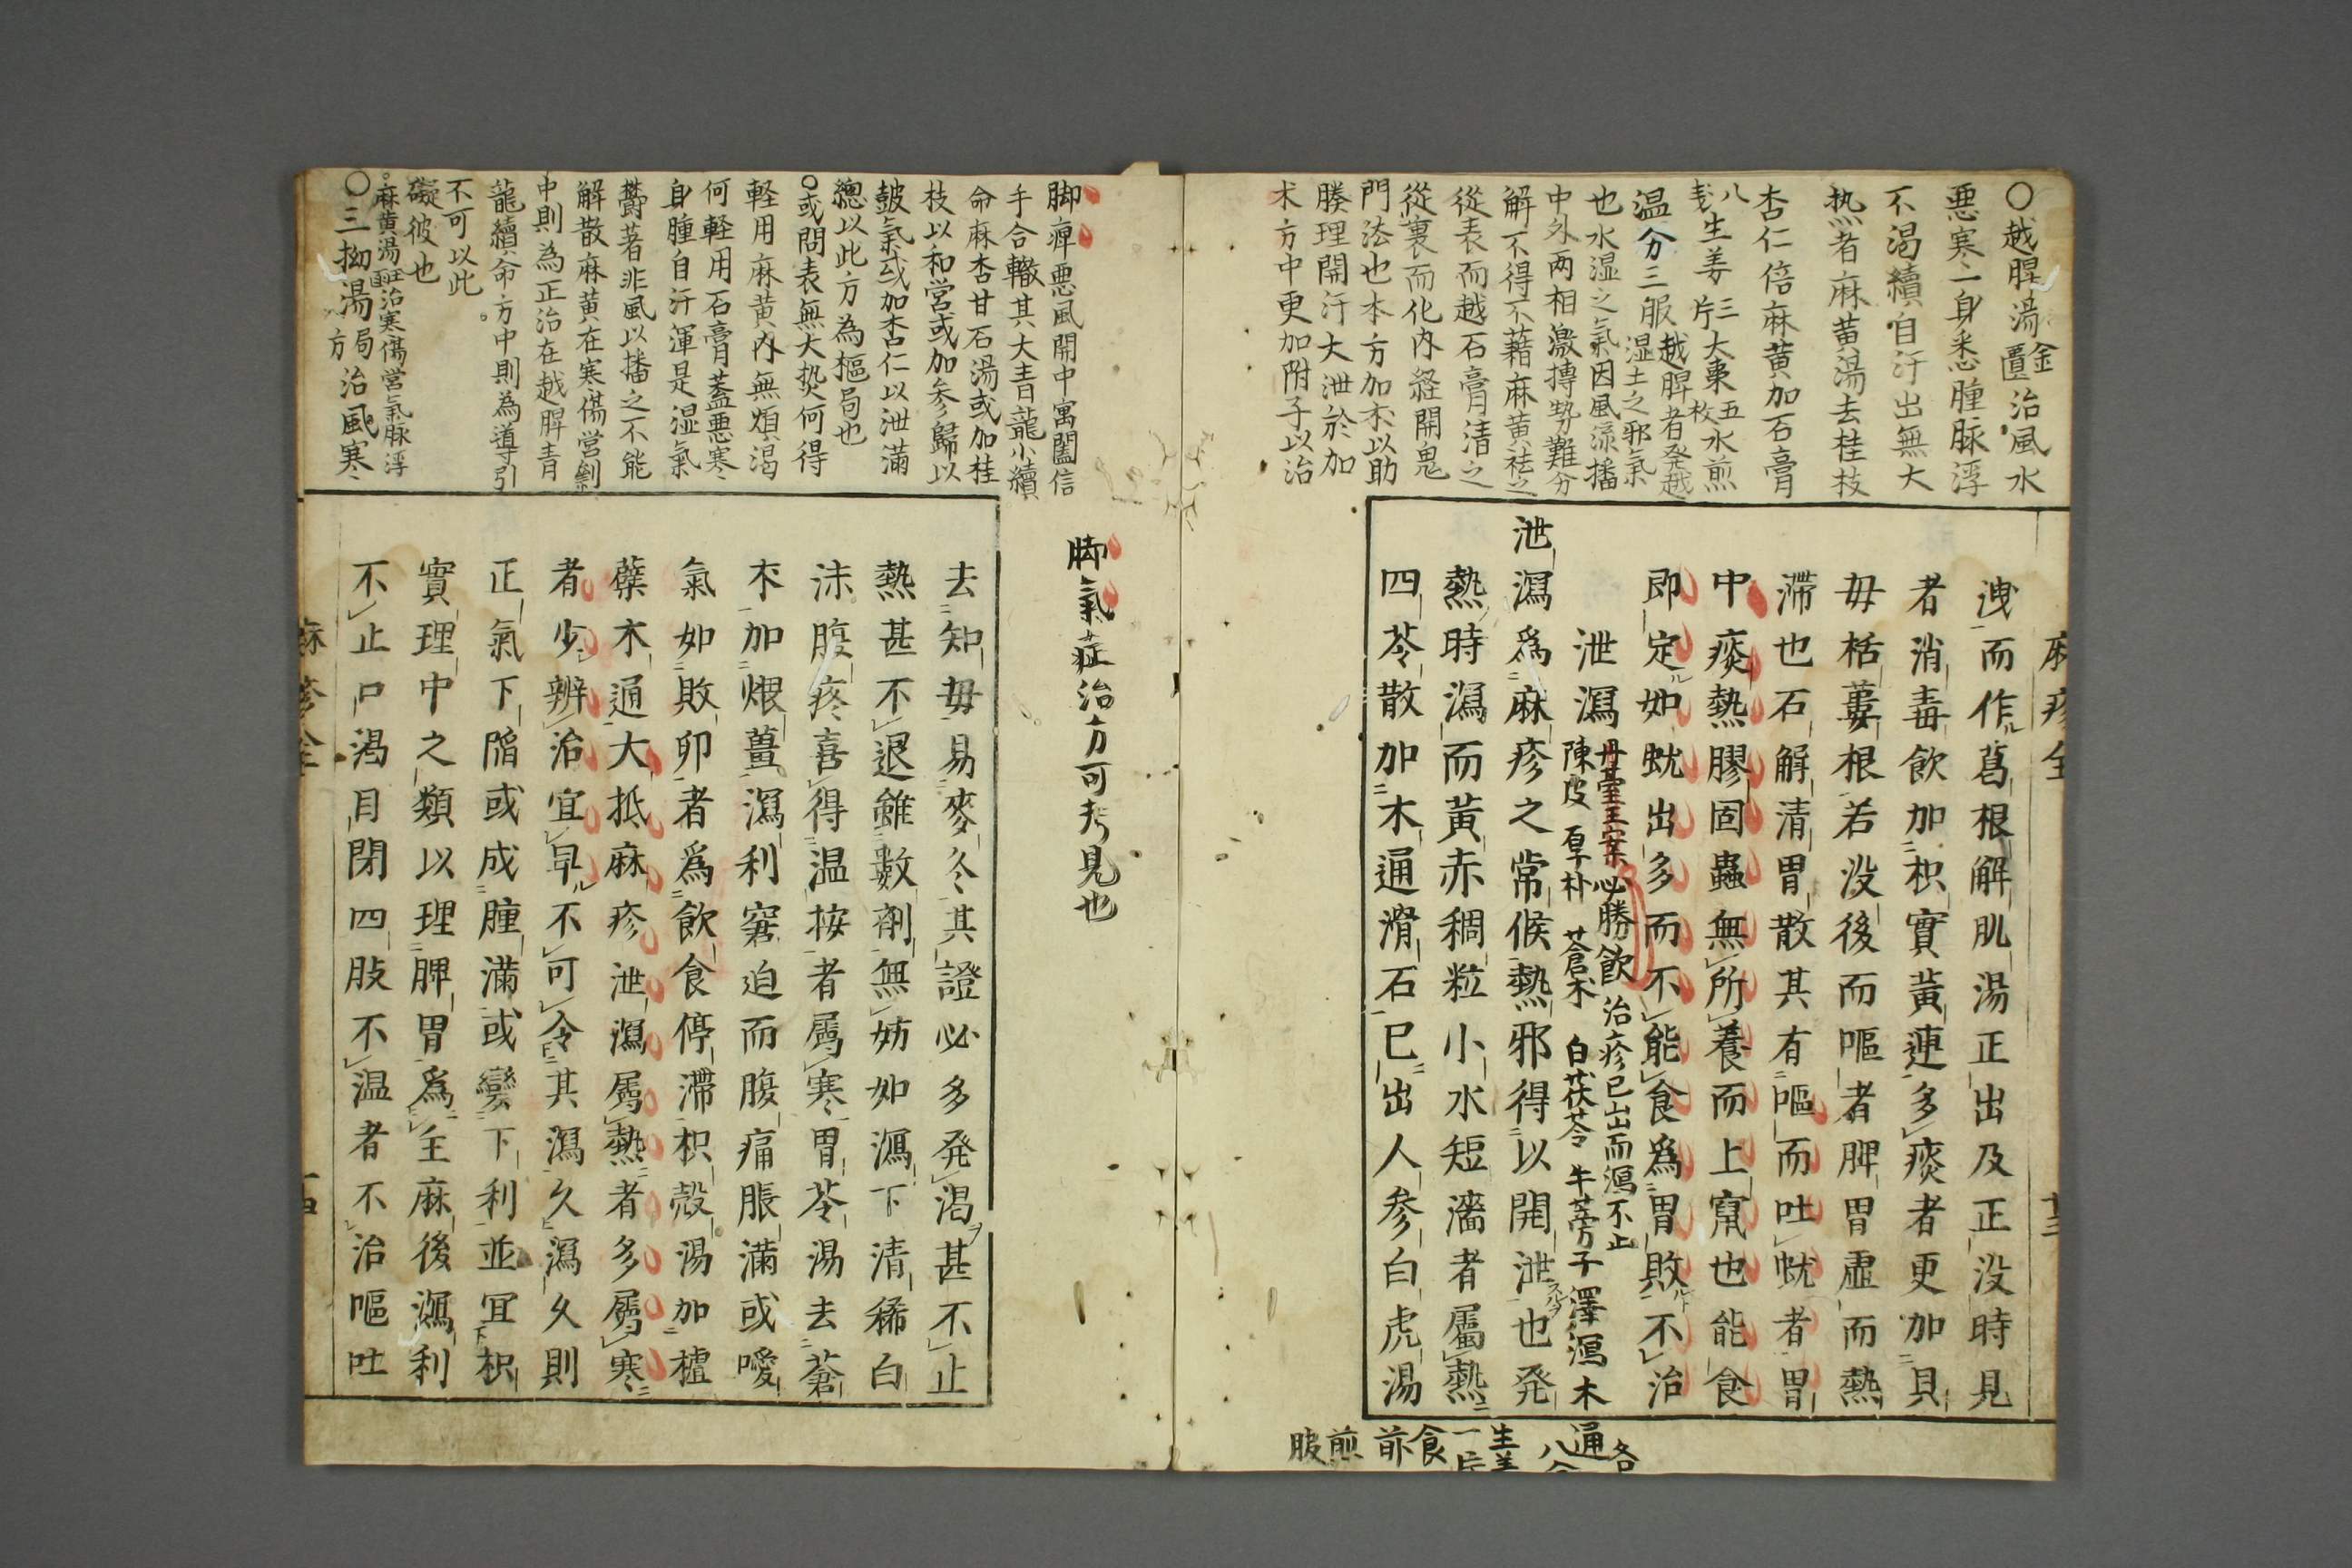 〇越脾湯金匱治風水
悪寒一身悉腫脉浮
不渇續自汗出無大
热者麻黄湯去桂枝
杏仁倍麻黄加石膏
八戔生姜三片大棗五枚水煎
温分三服越脾者発越湿土之邪氣
也水湿之氣因風流播
中外两相激搏势難分
解不得不藉麻黄祛之
從表而越石膏清之
從裏而化内経開鬼
門法也本方加朮以助
腠理開汗大泄於加
朮方中更加附子以治
麻疹全
十三
洩而作葛根解肌湯正出及正没時見
者消毒飲加枳實黄連多痰者更加貝
毋栝蔞根若没後而嘔者脾胃虚而熱
滞也石解清胃散其有嘔而吐蚘者胃
中痰熱膠固蟲無所養而上竄也能食
即定如蚘出多而不能食爲胃敗不治
泄瀉
丹臺玉案必勝飲治疹已出而瀉不止
陳皮 厚朴 蒼朮 白茯苓 牛蒡子澤瀉木
通各八分
生姜一片
食前煎服
泄瀉爲麻疹之常候熱邪得以開泄也発
熱時瀉而黄赤稠粒小水短濇者屬熱
四苓散加木通滑石已出人参白虎湯
脚痺悪風開中寓闔信
手合轍其大青龍小續
命麻杏甘石湯或加桂
枝以和営或加参歸以
皷氣或加杏仁以泄滿
總以此方為樞局也
〇或問表無大热何得
軽用麻黄内無煩渇
何軽用石膏蓋悪寒
身腫自汗渾是湿氣
欝著非風以播之不能
解散麻黄在寒傷営劑
中則為正治在越脾青
龍續命方中則為導引
不可以此
礙彼也
麻黄湯治寒傷営氣脉浮
〇三拗湯局方治風寒
脚氣症治方可考見也
去知毋易麥冬其證必多発渇甚不止
熱甚不退雖數劑無妨如瀉下清稀白
沫腹疼喜得温按者屬寒胃苓湯去蒼
朮加煨薑瀉利窘迫而腹痛脹滿或噯
氣如敗卵者爲飲食停滯枳殻湯加櫨
蘗木通大抵麻疹泄瀉屬熱者多屬寒
者少辨治宜早不可令其瀉久瀉久則
正氣下陷或成腫滿或變下利並冝枳
實理中之類以理脾胃爲主麻後瀉利
不止口渇目閉四肢不温者不治嘔吐
麻疹全